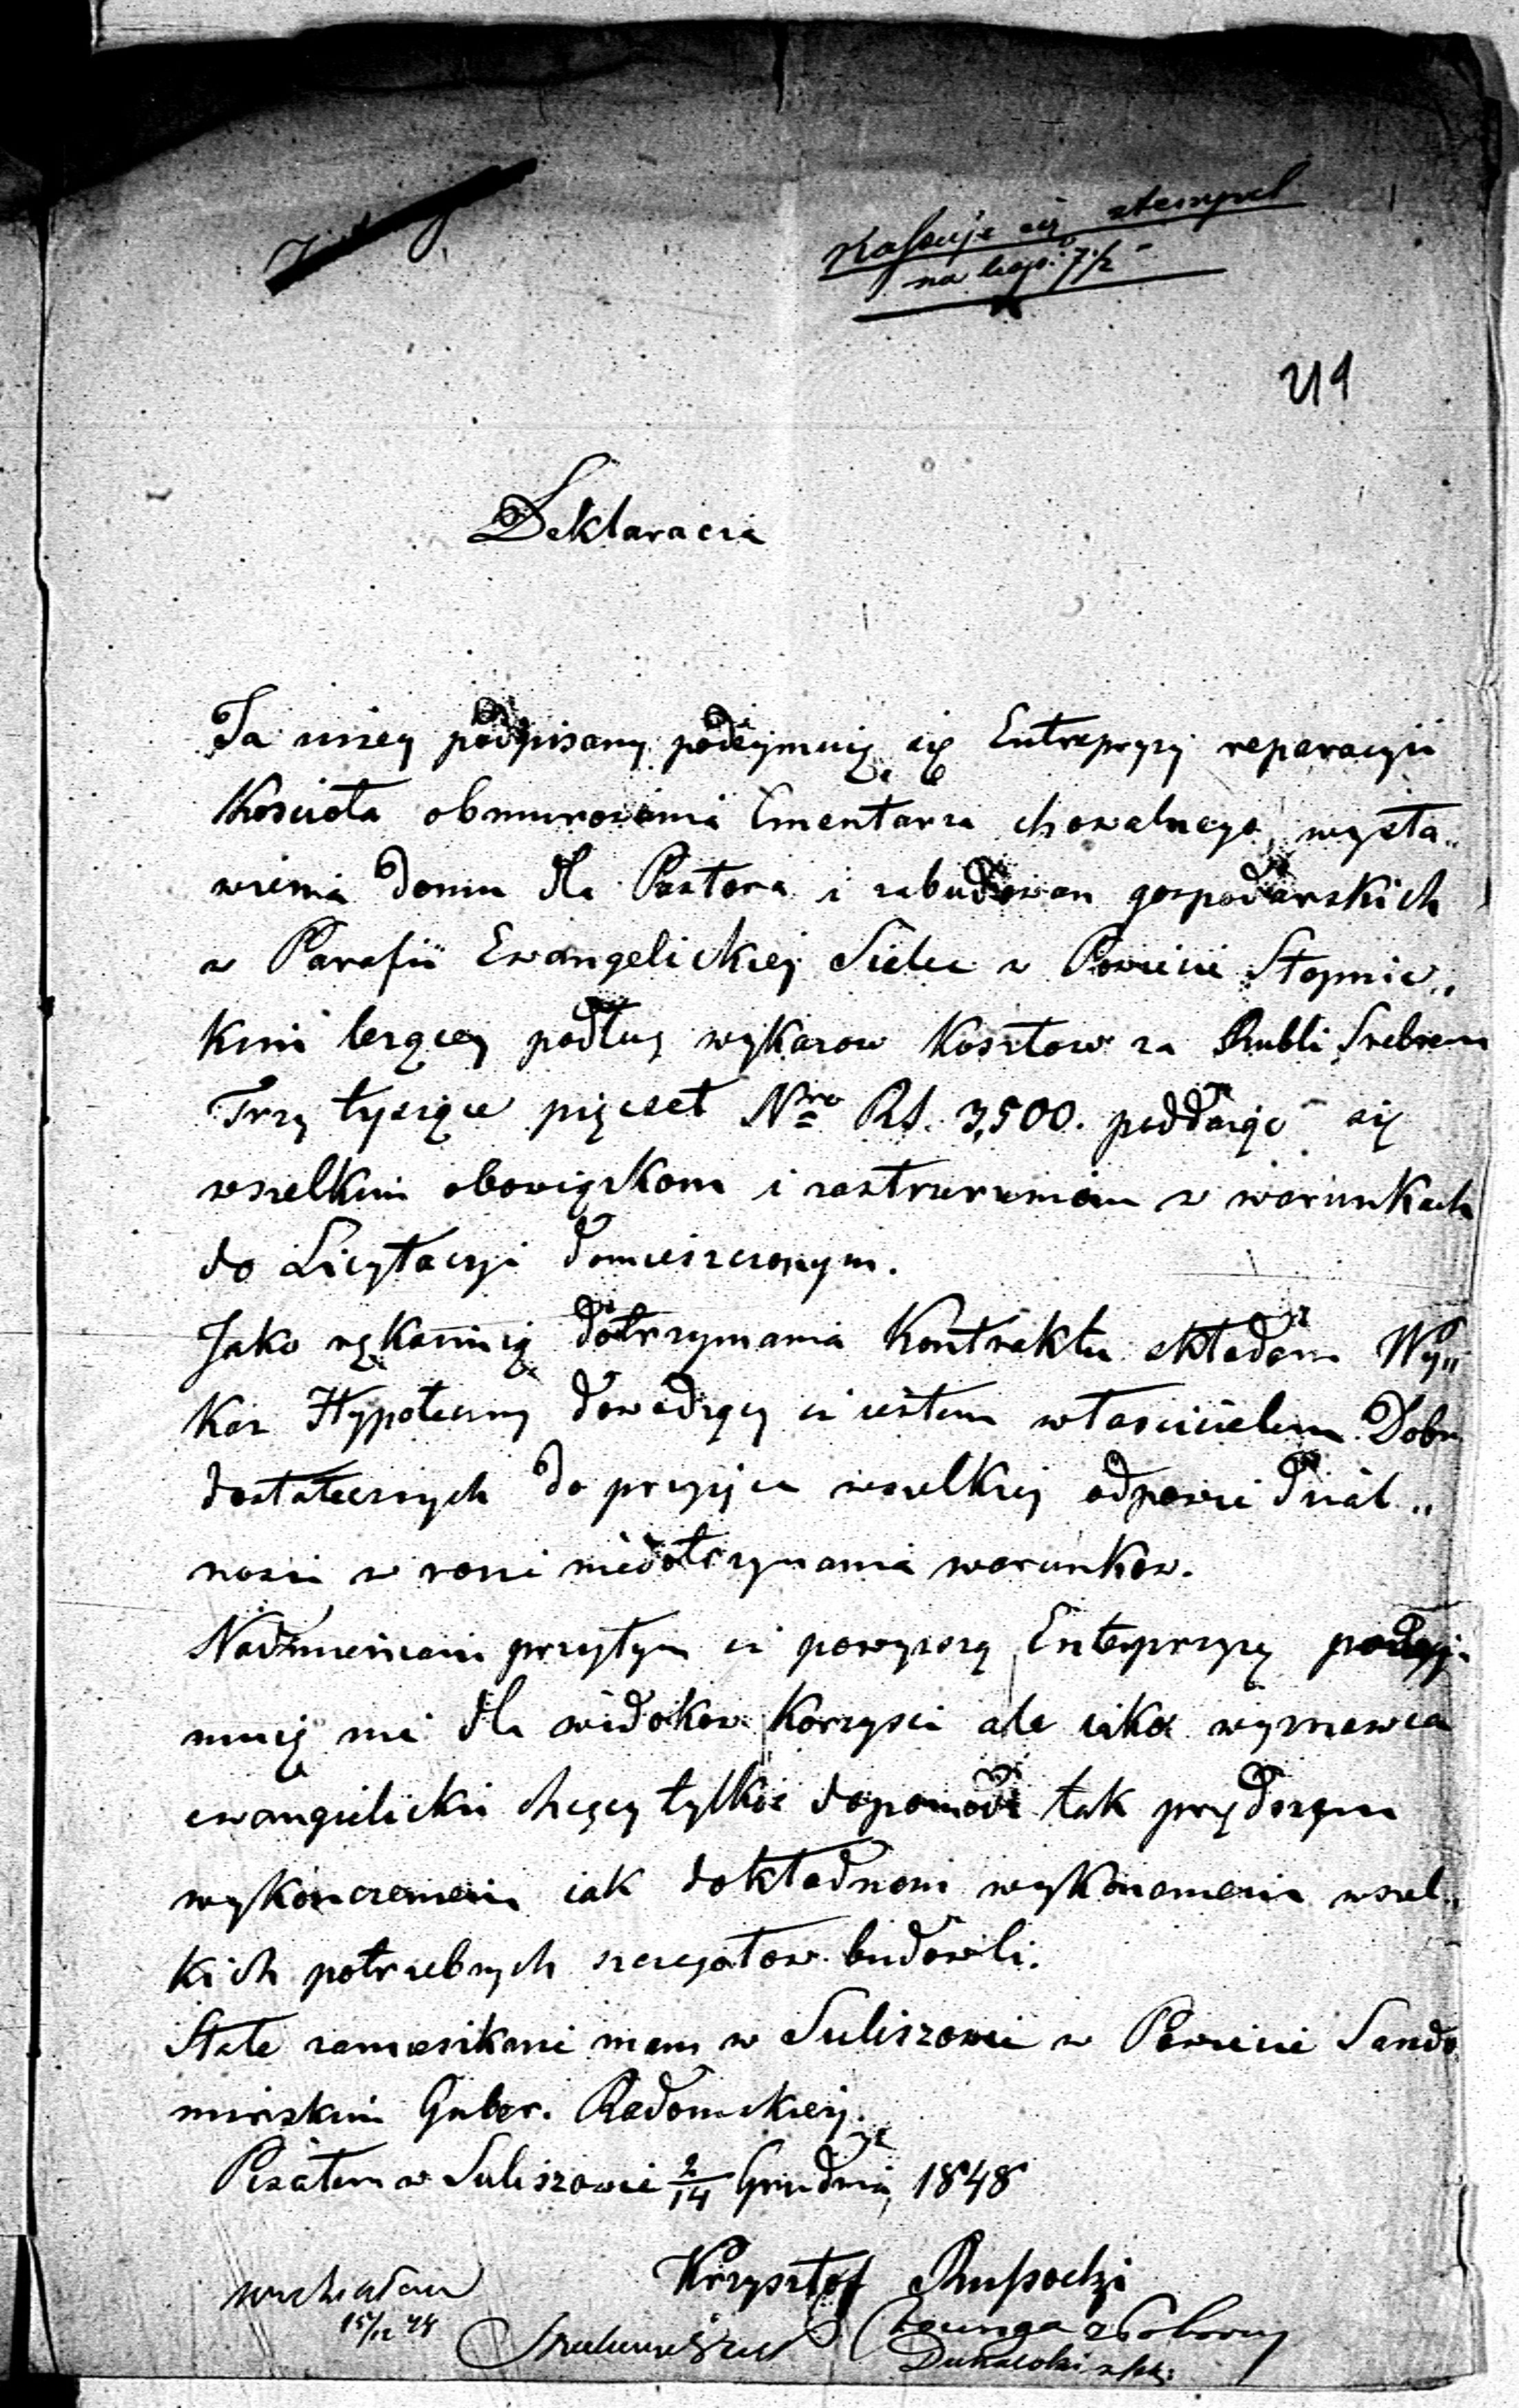 Kassuje się stempel
na kop. 7½
219
Deklaracia
Ja niżey podpisany podeymuię się Entrepryzy reparacyii
Kościoła obmurowania Cmentarza chowalnego, wysta„
wienia domu dla Pastora i zabudowan gospodarskich
w Parafii Ewangelickiej Sielec w Powiecie Stopnic„
kim leżącey podług wykazow kosztow za Rubli Srebrem
Trzy tysiące pięcset Nro RS. 3,500. poddaiąc się
wszelkim obowiązkom i zastrzezeniom w warunkach
do Licytacyi domieszczonym.
Jako rękoimią dotrzymania Kontraktu składam Wy„
kaz Hypoteczny dowodzący iż iestem właścicielem Dobr
dostatecznych do przyięcia wszelkiey odpowiedzial„
nosci w razie niedotrzymania warunkow.
Nadmieniam przytym iż powyzszą Enterpryzę podey„
muię nie dla widokow korzysci ale iako wyznawca
ewangielicki chcący tylko dopomodz tak prędszem
wykonczeniem iak dokładnem wykonaniem wszel„
kich potrzebnych szczegołow budowli.
Stałe zamieszkanie mam w Suliszowie w Powiecie Sando
mirskim Guber. Radomskiey.
Pisałem w Suliszowie 2/14 Grudnia 1848
Krzysztof
15/12 48